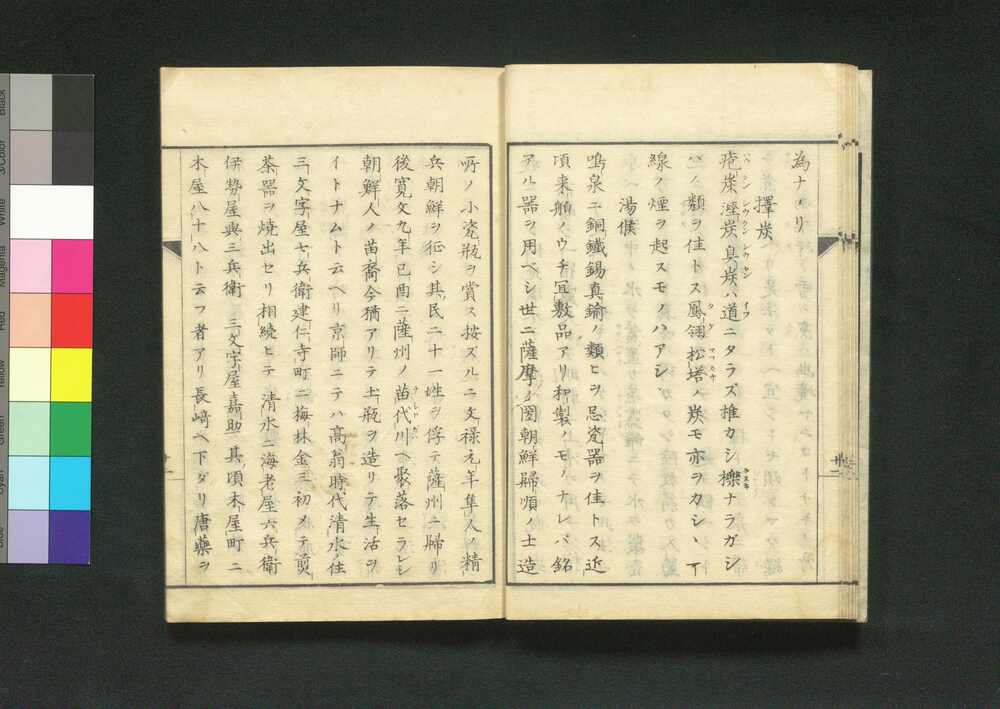 為ナルリ
擇炭
疱炭溼炭臭炭ハ道ニタラズ推カシ櫟ナラガシ
ハノ類ヲ佳トス鳳翎松塔ノ炭モ亦ヲカシヽ一
線ノ煙ヲ起スモノハアシ
湯候
鳴泉ニ銅鐵錫真鍮ノ類ヒヲ忌瓷器ヲ佳トス近
頃来舶ノウチ宜敷品アリ和製ノモノナレバ銘
アル器ヲ用ベシ世ニ薩摩ノ國朝鮮歸順ノ士造
所ノ小瓷瓶ヲ賞ス按ズルニ文禄元年隼人ノ精
兵朝鮮ヲ征シ其民二十一姓ヲ俘テ薩州ニ歸リ
後寛文九年己酉ニ薩州ノ苗代川ヘ聚落セラレシ
朝鮮人ノ苗裔今猶アリテ土瓶ヲ造リテ生活ヲ
イトナムト云ヘリ京師ニテハ高翁時代清水ノ住
三文字屋七兵衛建仁寺町ニ梅林金三初メテ煎
茶器ヲ焼出セリ相続ヒテ清水ニ海老屋六兵衛
伊勢屋與三兵衛三文字屋嘉助其頃木屋町ニ
木屋八十八ト云フ者アリ長﨑ヘ下ダリ唐藥ヲ
Black
3/Color
White
Magenta
Red
Yellow
Green
Cyan
Blue